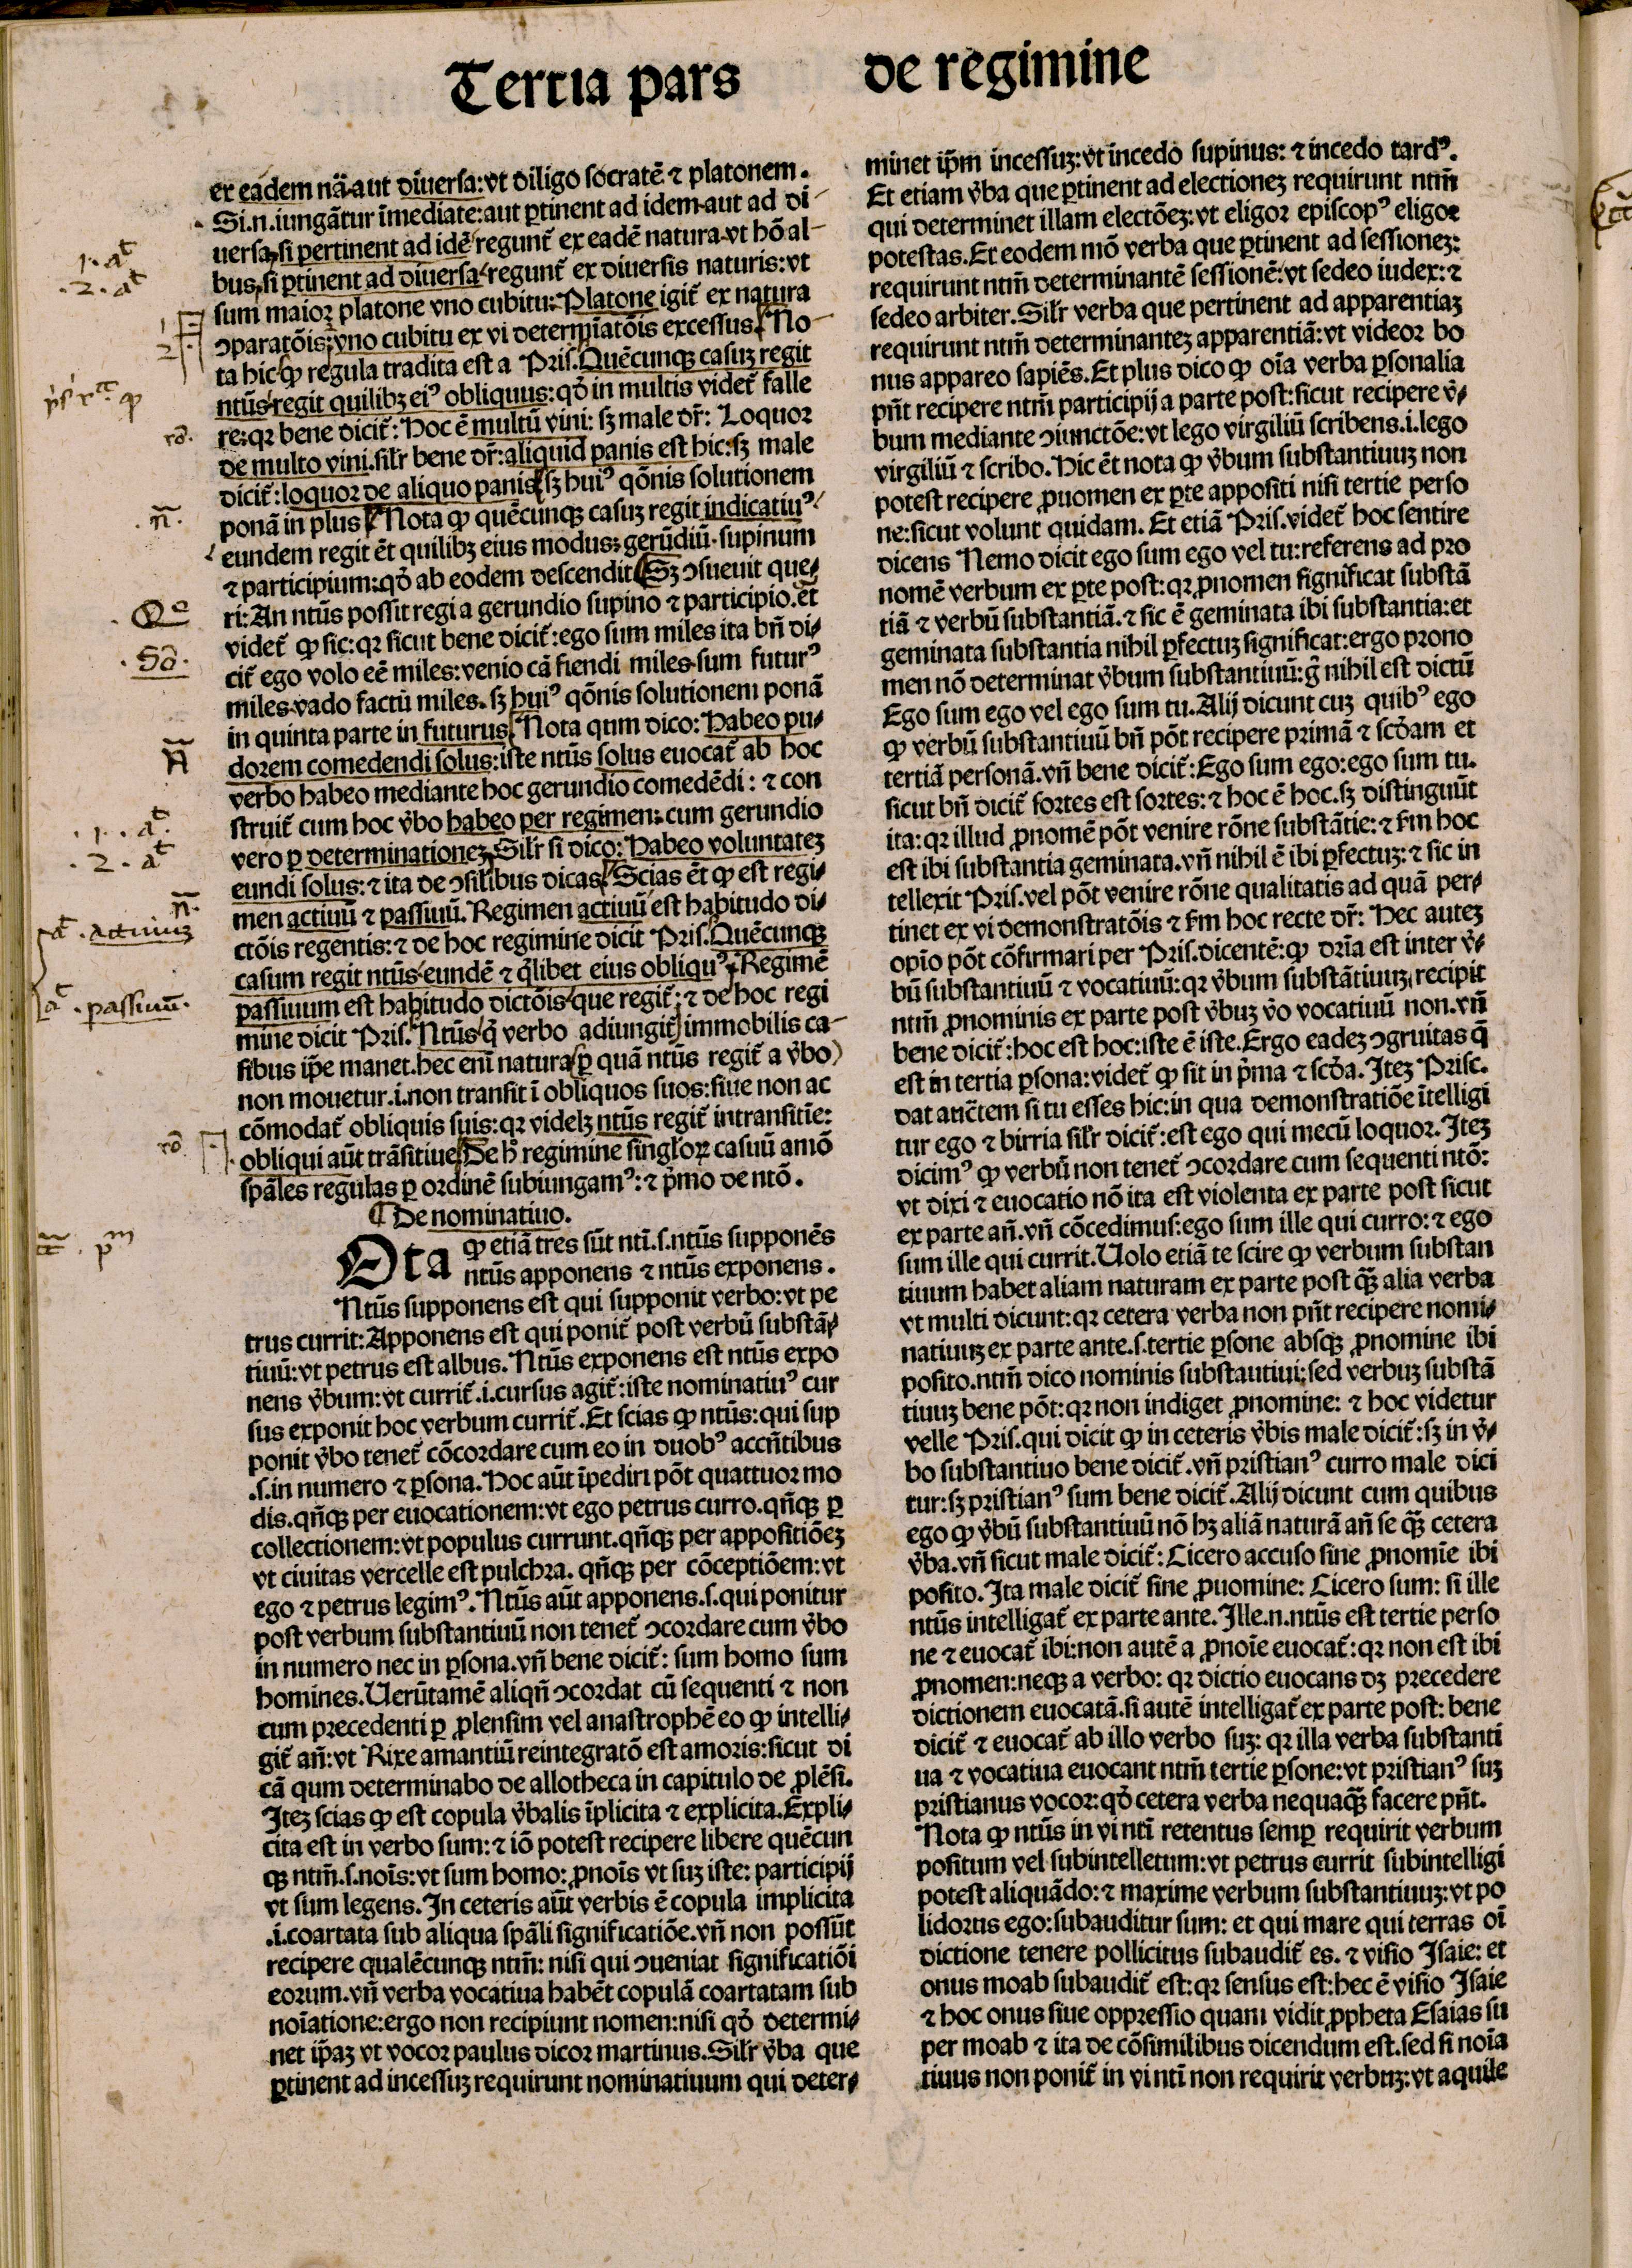 Tertia pars de regimine
ex eadem nã.aut diuersa:vt diligo socratē ⁊ platonem.
Si.n.iungãtur īmediate:aut ꝑtinent ad idem aut ad di
uersa,si pertinent ad idē regunt̃ ex eadē natura.vt hõ al
bus,si ꝑtinent ad diuersa regunt̃ ex diuersis naturis:vt
sum maior platone vno cubitu:Platone igit̃ ex natura
ꝯparatõis:vno cubitu ex vi determĩatõis excessus. No
ta hic ꝙ regula tradita est a Pris.Quēcunqꝫ casuꝫ regit
ntũs regit quilibꝫ eiꝰ obliquus:qđ in multis videt̃ falle
re:qꝛ bene dicit̃: Hoc ē multũ vini: sꝫ male dr̃: Loquor
de multo vini.silr̃ bene dr̃:aliquid panis est hic:sꝫ male
dicit̃:loquor de aliquo panis sꝫ huiꝰ qõnis solutionem
ponã in plus Nota ꝙ quēcunqꝫ casuꝫ regit indicatiuꝰ
eundem regit ēt quilibꝫ eius modus: gerũdiũ.supinum
⁊ participium:qđ ab eodem descendit Sꝫ ꝯsueuit que-
ri:An ntũs possit regi a gerundio supino ⁊ participio.ēt
videt̃ ꝙ sic:qꝛ sicut bene dicit̃:ego sum miles ita bñ di-
cit̃ ego volo eē miles:venio cã fiendi miles.sum futurꝰ
miles.vado factũ miles. sꝫ huiꝰ qõnis solutionem ponã
in quinta parte in futurus Nota qum dico: Habeo pu-
dorem comedendi solus:iste ntũs solus euocat̃ ab hoc
verbo habeo mediante hoc gerundio comedēdi: ⁊ con
struit̃ cum hoc v̾bo habeo per regimen: cum gerundio
vero ꝑ determinationeꝫ.Silr̃ si dico: Habeo voluntateꝫ
eundi solus: ⁊ ita de ꝯsilibus dicas Scias ēt ꝙ est regi-
men actiuũ ⁊ passiuũ. Regimen actiuũ est habitudo di-
ctõis regentis: ⁊ de hoc regimine dicit Pris.Quēcunqꝫ
casum regit ntũs eundē ⁊ q̃libet eius obliquꝰ. Regimē
passiuum est habitudo dictõis que regit̃: ⁊ de hoc regi
mine dicit Pris. Ntũs q̃ verbo adiungit̃ immobilis ca-
sibus ip̃e manet.hec eni natura ꝑ quã ntũs regit̃ a v̾bo
non mouetur.i.non transit ĩ obliquos suos:siue non ac
cõmodat̃ obliquis suis:qꝛ videlꝫ ntũs regit̃ intransitiē:
obliqui aũt trãsitiue De h̾ regimine singl̾oꝝ casuũ amõ
spãles regulas ꝑ ordinē subiungamꝰ: ⁊ p̃mo de ntõ.
¶ De nominatiuo.
Ota ꝙ etiã tres sũt nti.s.ntũs supponēs
ntũs apponens ⁊ ntũs exponens.
Ntũs supponens est qui supponit verbo:vt pe
trus currit:Apponens est qui ponit̃ post verbũ substã-
tiuũ:vt petrus est albus. Ntũs exponens est ntũs expo
nens v̾bum:vt currit̃.i.cursus agit̃:iste nominatiuꝰ cur
sus exponit hoc verbum currit̃.Et scias ꝙ ntũs:qui sup
ponit v̾bo tenet̃ cõcordare cum eo in duobꝰ accñtibus
.s.in numero ⁊ ꝑsona.Hoc aũt ĩpediri põt quattuor mo
dis.qñqꝫ per euocationem:vt ego petrus curro.qñqꝫ ꝑ
collectionem:vt populus currunt.qñqꝫ per appositiõeꝫ
vt ciuitas vercelle est pulchra. qñqꝫ per cõceptiõem:vt
ego ⁊ petrus legimꝰ. Ntũs aũt apponens.s.qui ponitur
post verbum substantiuũ non tenet̃ ꝯcordare cum v̾bo
in numero nec in ꝑsona.vñ bene dicit̃: sum homo sum
homines.Uerũtamē aliqñ ꝯcordat cũ sequenti ⁊ non
cum precedenti ꝑ ꝓlensim vel anastrophē eo ꝙ intelli-
git̃ añ:vt Rixe amantiũ reintegratõ est amoris:sicut di
cã qum determinabo de allotheca in capitulo de ꝓlēsi.
Iteꝫ scias ꝙ est copula v̾balis ĩplicita ⁊ explicita.Expli-
cita est in verbo sum: ⁊ iõ potest recipere libere quēcun
qꝫ ntm̃.s.nois:vt sum homo: ꝓnois vt suꝫ iste: participij
vt sum legens. In ceteris aũt verbis ē copula implicita
.i.coartata sub aliqua spãli significatiõe.vñ non possũt
recipere qualēcunqꝫ ntm̃: nisi qui ꝯueniat significatiõi
eorum.vñ verba vocatiua habēt copulã coartatam sub
noĩatione:ergo non recipiunt nomen:nisi qđ determi-
net ip̃aꝫ vt vocor paulus dicor martinus.Silr̃ v̾ba que
ꝑtinent ad incessuꝫ requirunt nominatiuum qui deter-
minet ip̃m incessuꝫ:vt incedo supinus: ⁊ incedo tardꝰ.
Et etiam v̾ba que ꝑtinent ad electioneꝫ requirunt ntm̃
qui determinet illam electõeꝫ:vt eligor episcopꝰ eligor
potestas.Et eodem mõ verba que ꝑtinent ad sessioneꝫ:
requirunt ntm̃ determinantē sessionē:vt sedeo iudex: ⁊
sedeo arbiter.Silr̃ verba que pertinent ad apparentiaꝫ
requirunt ntm̃ determinanteꝫ apparentiã:vt videor bo
nus appareo sapiēs.Et plus dico ꝙ oĩa verba ꝑsonalia
pñt recipere ntm̃ participij a parte post:sicut recipere v̾-
bum mediante ꝯiunctõe:vt lego virgiliũ scribens.i.lego
virgiliũ ⁊ scribo.Hic ēt nota ꝙ v̾bum substantiuuꝫ non
potest recipere ꝓuomen ex ꝑte appositi nisi tertie perso
ne:sicut volunt quidam. Et etiã Pris.videt̃ hoc sentire
dicens Nemo dicit ego sum ego vel tu:referens ad pro
nomē verbum ex ꝑte post:qꝛ ꝓnomen significat substã
tiã ⁊ verbũ substantiã. ⁊ sic ē geminata ibi substantia:et
geminata substantia nihil ꝑfectuꝫ significat:ergo prono
men nõ determinat v̾bum substantiuũ:g̃ nihil est dictũ
Ego sum ego vel ego sum tu.Alij dicunt cuꝫ quibꝰ ego
ꝙ verbũ substantiuũ bñ põt recipere primã ⁊ scđam et
tertiã personã.vñ bene dicit̃:Ego sum ego:ego sum tu.
sicut bñ dicit̃ sortes est sortes: ⁊ hoc ē hoc.sꝫ distinguũt
ita:qꝛ illud ꝓnomē põt venire rõne substãtie: ⁊ fm hoc
est ibi substantia geminata.vñ nihil ē ibi ꝑfectuꝫ: ⁊ sic in
tellexit Pris.vel põt venire rõne qualitatis ad quã per-
tinet ex vi demonstratõis ⁊ fm hoc recte dr̃: Hec auteꝫ
opio põt cõfirmari per Pris.dicentē:ꝙ dr̃ia est inter v̾-
bũ substantiuũ ⁊ vocatiuũ:qꝛ v̾bum substãtiuuꝫ recipit
ntm̃ ꝓnominis ex parte post v̾buꝫ v̾o vocatiuũ non.vñ
bene dicit̃:hoc est hoc:iste ē iste.Ergo eadeꝫ ꝯgruitas q̃
est in tertia ꝑsona:videt̃ ꝙ sit in p̃ma ⁊ scđa. Iteꝫ Prisc.
dat auc̃tem si tu esses hic:in qua demonstratiõe ĩtelligi
tur ego ⁊ birria silr̃ dicit̃:est ego qui mecũ loquor. Iteꝫ
dicimꝰ ꝙ verbũ non tenet̃ ꝯcordare cum sequenti ntõ:
vt dixi ⁊ euocatio nõ ita est violenta ex parte post sicut
ex parte añ.vñ cõcedimus:ego sum ille qui curro: ⁊ ego
sum ille qui currit.Uolo etiã te scire ꝙ verbum substan
tiuum habet aliam naturam ex parte post q̃ꝫ alia verba
vt multi dicunt:qꝛ cetera verba non pñt recipere nomi-
natiuuꝫ ex parte ante.s.tertie ꝑsone absqꝫ ꝓnomine ibi
posito.ntm̃ dico nominis substautiui:sed verbuꝫ substã
tiuuꝫ bene põt:qꝛ non indiget ꝓnomine: ⁊ hoc videtur
velle Pris.qui dicit ꝙ in ceteris v̾bis male dicit̃:sꝫ in v̾-
bo substantiuo bene dicit̃.vñ pristianꝰ curro male dici
tur:sꝫ pristianꝰ sum bene dicit̃.Alij dicunt cum quibus
ego ꝙ v̾bũ substantiuũ nõ hꝫ aliã naturã añ se q̃ꝫ cetera
v̾ba.vñ sicut male dicit̃: Cicero accuso sine ꝓnomie ibi
posito.Ita male dicit̃ sine ꝓuomine: Cicero sum: si ille
ntũs intelligat̃ ex parte ante.Ille.n.ntũs est tertie perso
ne ⁊ euocat̃ ibi:non autē a ꝓnoĩe euocat̃:qꝛ non est ibi
ꝓnomen:neqꝫ a verbo: qꝛ dictio euocans dꝫ precedere
dictionem euocatã.si autē intelligat̃ ex parte post: bene
dicit̃ ⁊ euocat̃ ab illo verbo suꝫ: qꝛ illa verba substanti
ua ⁊ vocatiua euocant ntm̃ tertie ꝑsone:vt pristianꝰ suꝫ
pristianus vocor:qđ cetera verba nequaq̃ꝫ facere pñt.
Nota ꝙ ntũs in vi nti retentus semꝑ requirit verbum
positum vel subintelletum:vt petrus currit subintelligi
potest aliquãdo: ⁊ maxime verbum substantiuuꝫ:vt po
lidorus ego:subauditur sum: et qui mare qui terras oĩ
dictione tenere pollicitus subaudit̃ es. ⁊ visio Isaie: et
onus moab subaudit̃ est:qꝛ sensus est:hec ē visio Isaie
⁊ hoc onus siue oppressio quam vidit ꝓpheta Esaias su
per moab ⁊ ita de cõsimilibus dicendum est.sed si noĩa
tiuus non ponit̃ in vi nti non requirit verbuꝫ:vt aquile